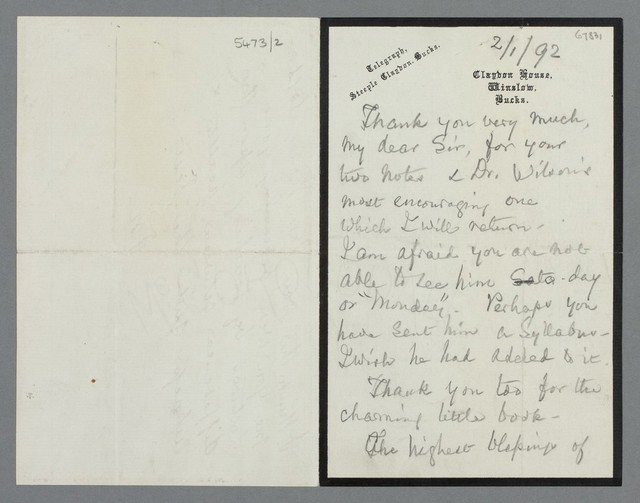 5473/2
67831
2/1/92
Telegraph,
Steeple Claydon. Bucks.
Claydon House,
Winslow,
Bucks.
Thank you very much,
my dear Sir, for your
two notes & Dr. Wilson's
most encouraging one
which I will return -
I am afraid you are not
able to see him Sata-day
or "Monday". Perhaps you
have sent him a Syllabus -
I wish he had added to it
Thank you too for the
charming little book -
The highest blessings of